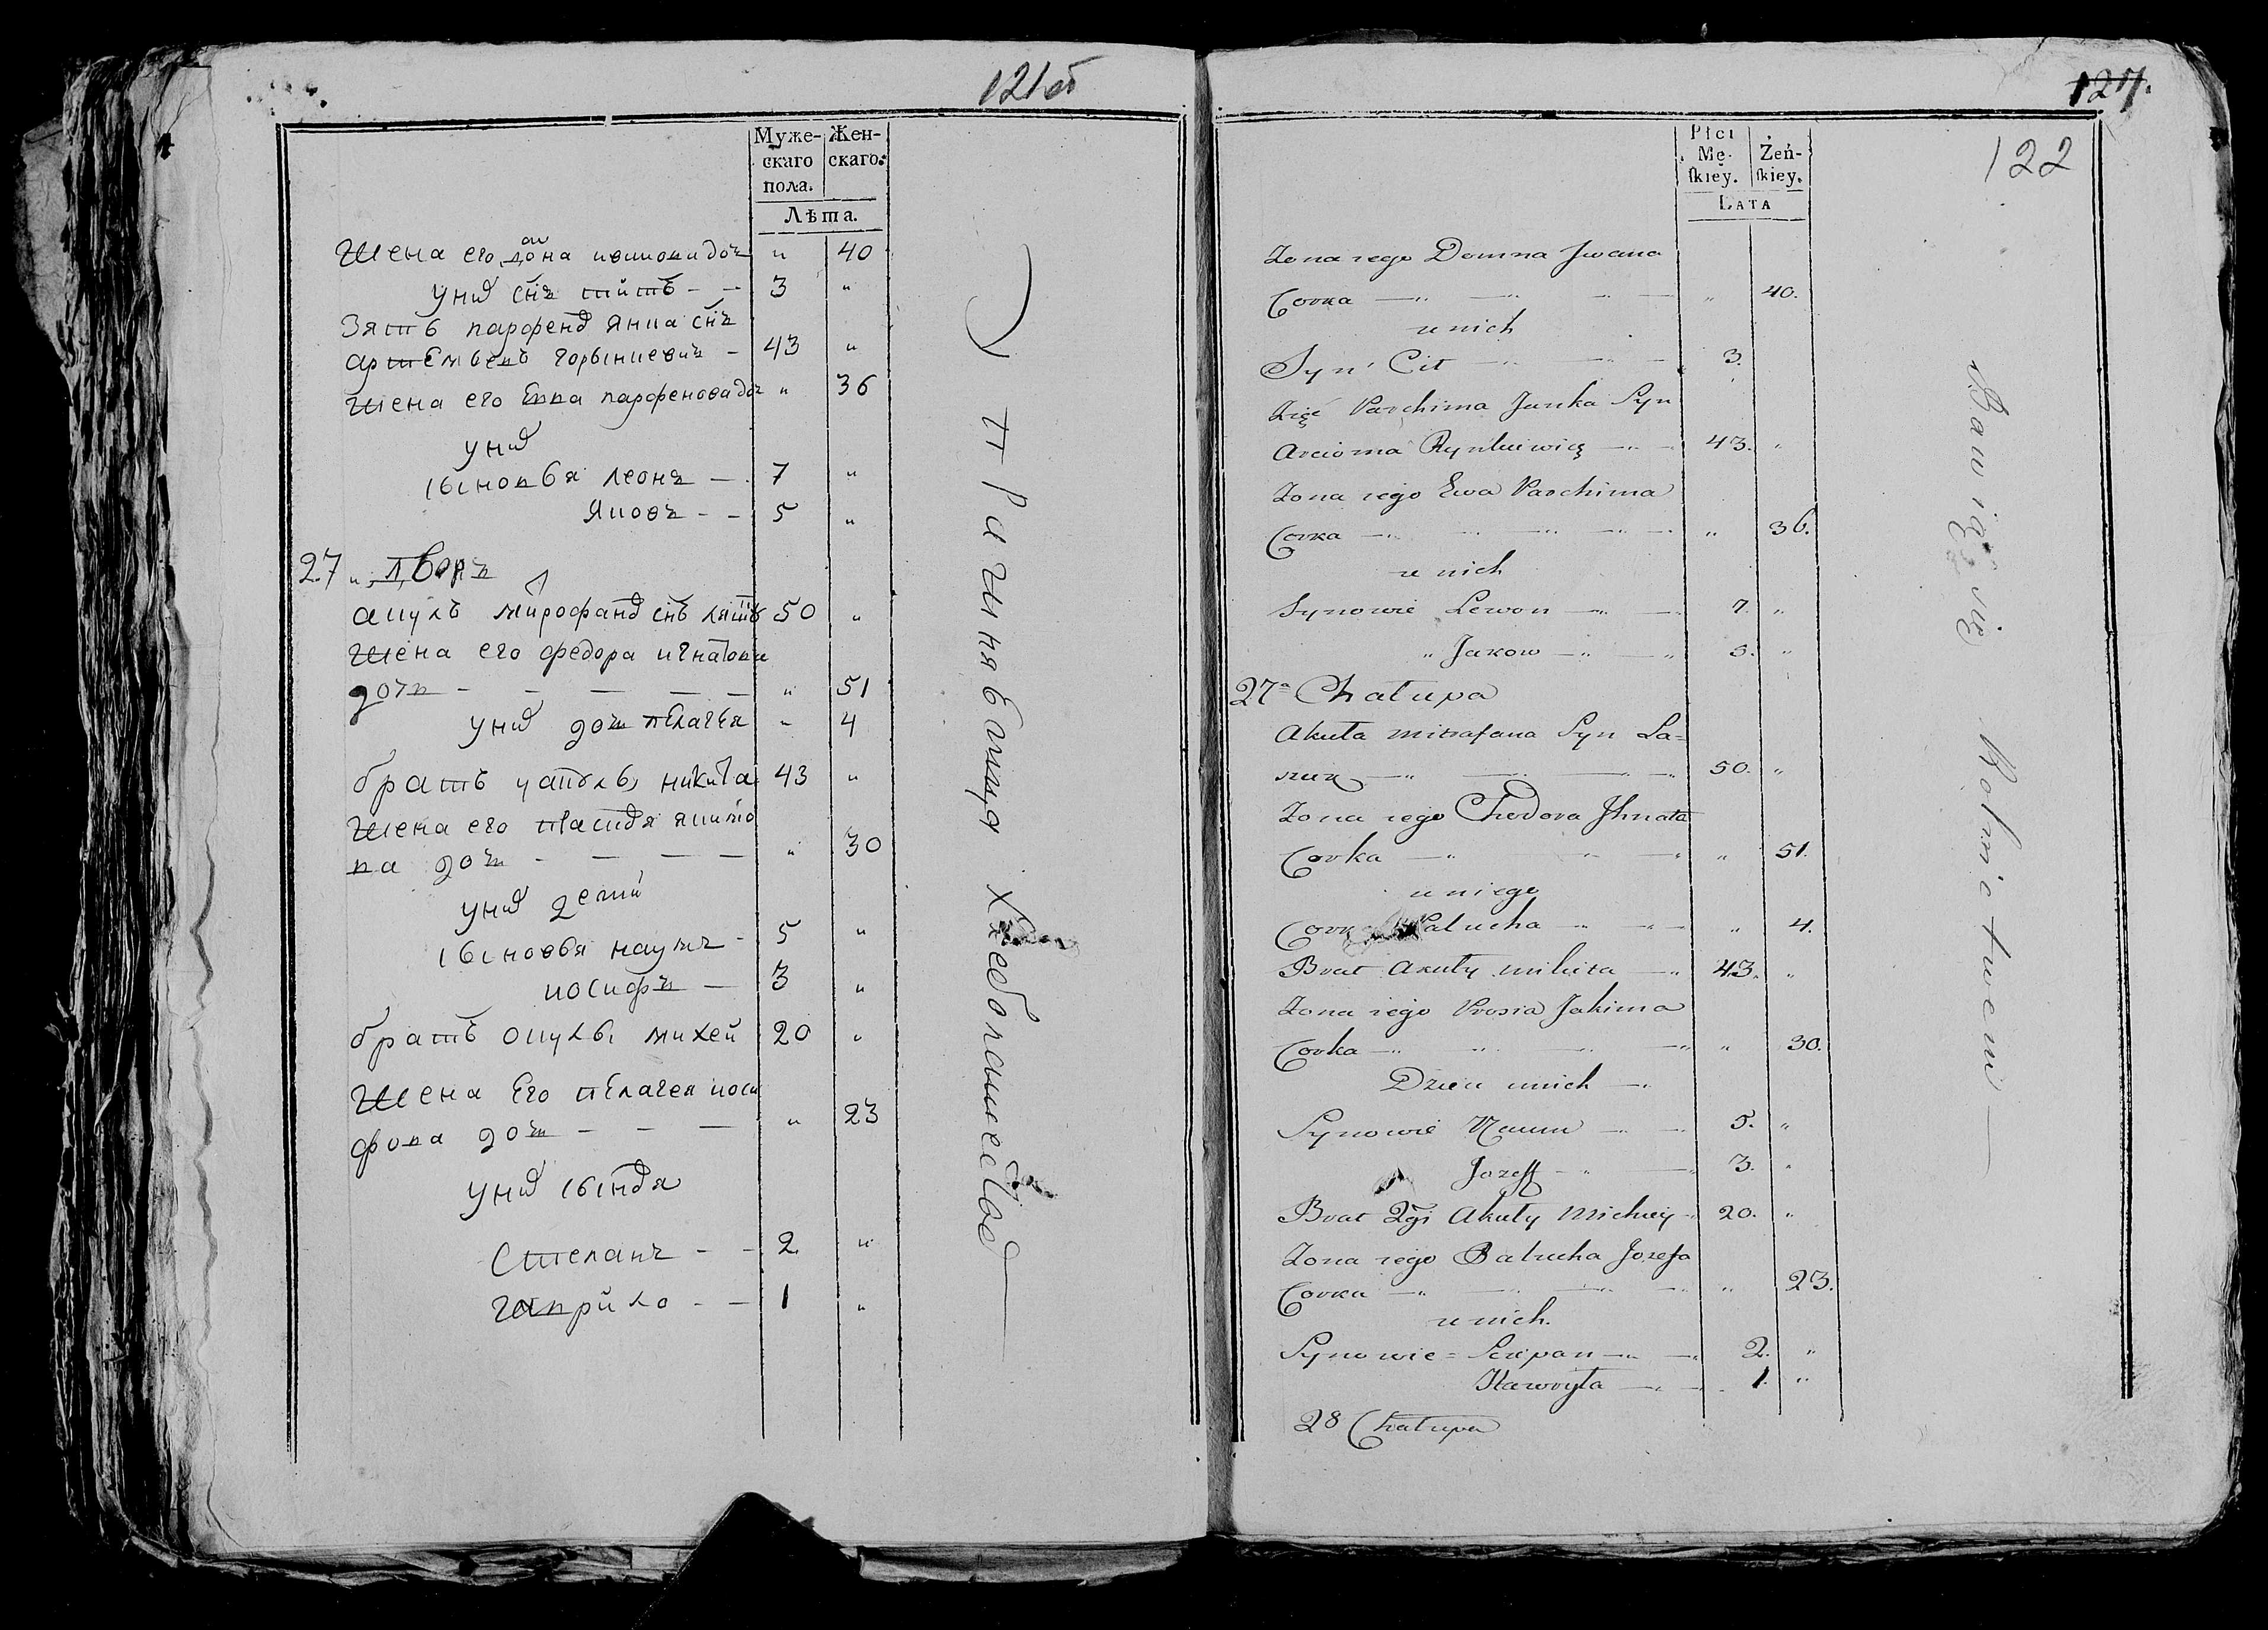 121об
Муже-
скаго
пола.
Жен-
скаго.
Лѣта.
Жена его домна ивановна доч " 40
у них сн титъ - - 3 "
Зять парфена янка сн
артемьевъ - 43 "
жена его Евва парфеновa доч " 36
у них
сыновья леонъ - 7 "
яковъ - - 5 "
27 " дворъ
акулъ митрофана снъ 50 "
жена его федора игнатова
дочь - - - - - " 51
у них доч пелагея - 4
братъ акулы никита 43 "
жена его якимо
ва доч - - - - " 30
у них дети
сыновья наумъ - 5 "
иосифъ - 3 "
братъ окулы михей 20 "
жена его пелагея иоси
фова доч - - - " 23
у них сыновья
степанъ - - 2 "
гаврило - - 1 "
упражняются хлебопашеством
127.
122
Płci
Mę-
skiey.
Żeń-
skiey.
Lata
Zona iego Domna Jwana
Corka - " - " 40.
u nich
Syn Cit - " 3.
Zięć Parchima Janka Syn
Arcioma - " 43. "
Zona iego Ewa Parchima
Corka - " - " 36.
u nich
Synowie Lewon - " 7. "
" Jakow - " 5. "
27a Chałupa
Akuła Mitrafana Syn La=
- " 50. "
Zona iego Chodora Jhnata
Corka - " - " 51.
u niego
Corka Palucha - " 4.
Brat Akuły Mikita - " 43. "
Zona iego Prosia Jakima
Corka - " - " 30.
Dzieci unich - "
Synowie Naum - " 5. "
Jozeff - " 3. "
Brat 2gi Akuły Michiey - 20. "
Zona iego Palucha Jozefa
Corka - " - " 23.
u nich.
Synowie = Sciepan - " 2. "
Hawryła - " 1. "
28 Chałupa
Bawią się Rolnictwem